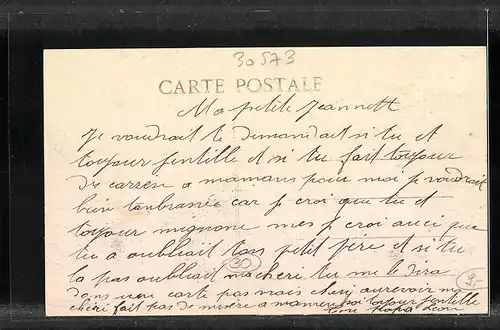 30573
CARTE POSTALE
Ma petite Jeannett
Je voudrait te demandait si tu et
toujour jentille et si tu fait toujour
des carresse a mamans pour moi je voudrait
bien tanbrassée car je croi que tu et
toujour mignone mes je croi auci que
tu a oubliait ton petit père et si tu
la pas oubliait ma cheri tu me le dira
dans une carte pas mois cheri aurevoir ma
cheri fait pas de misère a maman soi toujour jentille
ton papa Leon
30